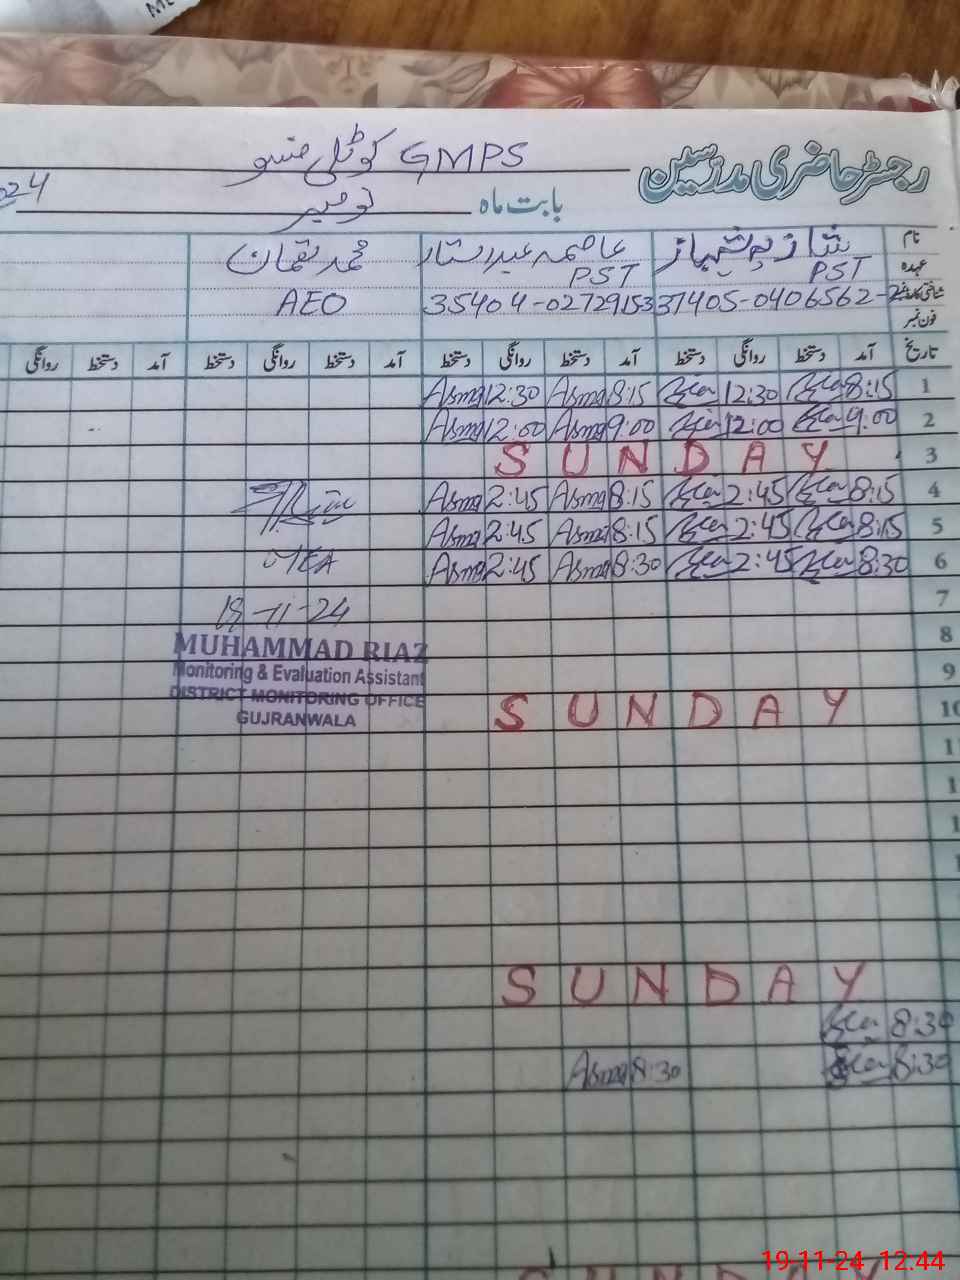 رجسٹر حاضری مدرسین
GMPS کوٹلی منسو
بابت ماہ نومبر 2024
نام شازیہ شہباز عاصمہ عبدالستار محمد نعمان
عہدہ PST PST AEO
شناختی کارڈ نمبر 37405-0406562-2 35404-0272915
فون نمبر
تاریخ آمد دستخط روانگی دستخط آمد دستخط روانگی دستخط آمد دستخط روانگی دستخط آمد دستخط روانگی
1 8:15 12:30 8:15 Asma 12:30 Asma
2 9:00 12:00 9:00 Asma 12:00 Asma
3 SUNDAY
4 8:15 2:45 8:15 Asma 2:45 Asma
5 8:15 2:45 8:15 Asma 2:45 Asma
6 8:30 2:45 8:30 Asma 2:45 Asma
MEA
7
8
9
MUHAMMAD RIAZ
Monitoring & Evaluation Assistant
DISTRICT MONITORING OFFICE
GUJRANWALA
10 SUNDAY
SUNDAY
8:30
8:30 8:30 Asma
SUNDAY
19-11-24 12.44